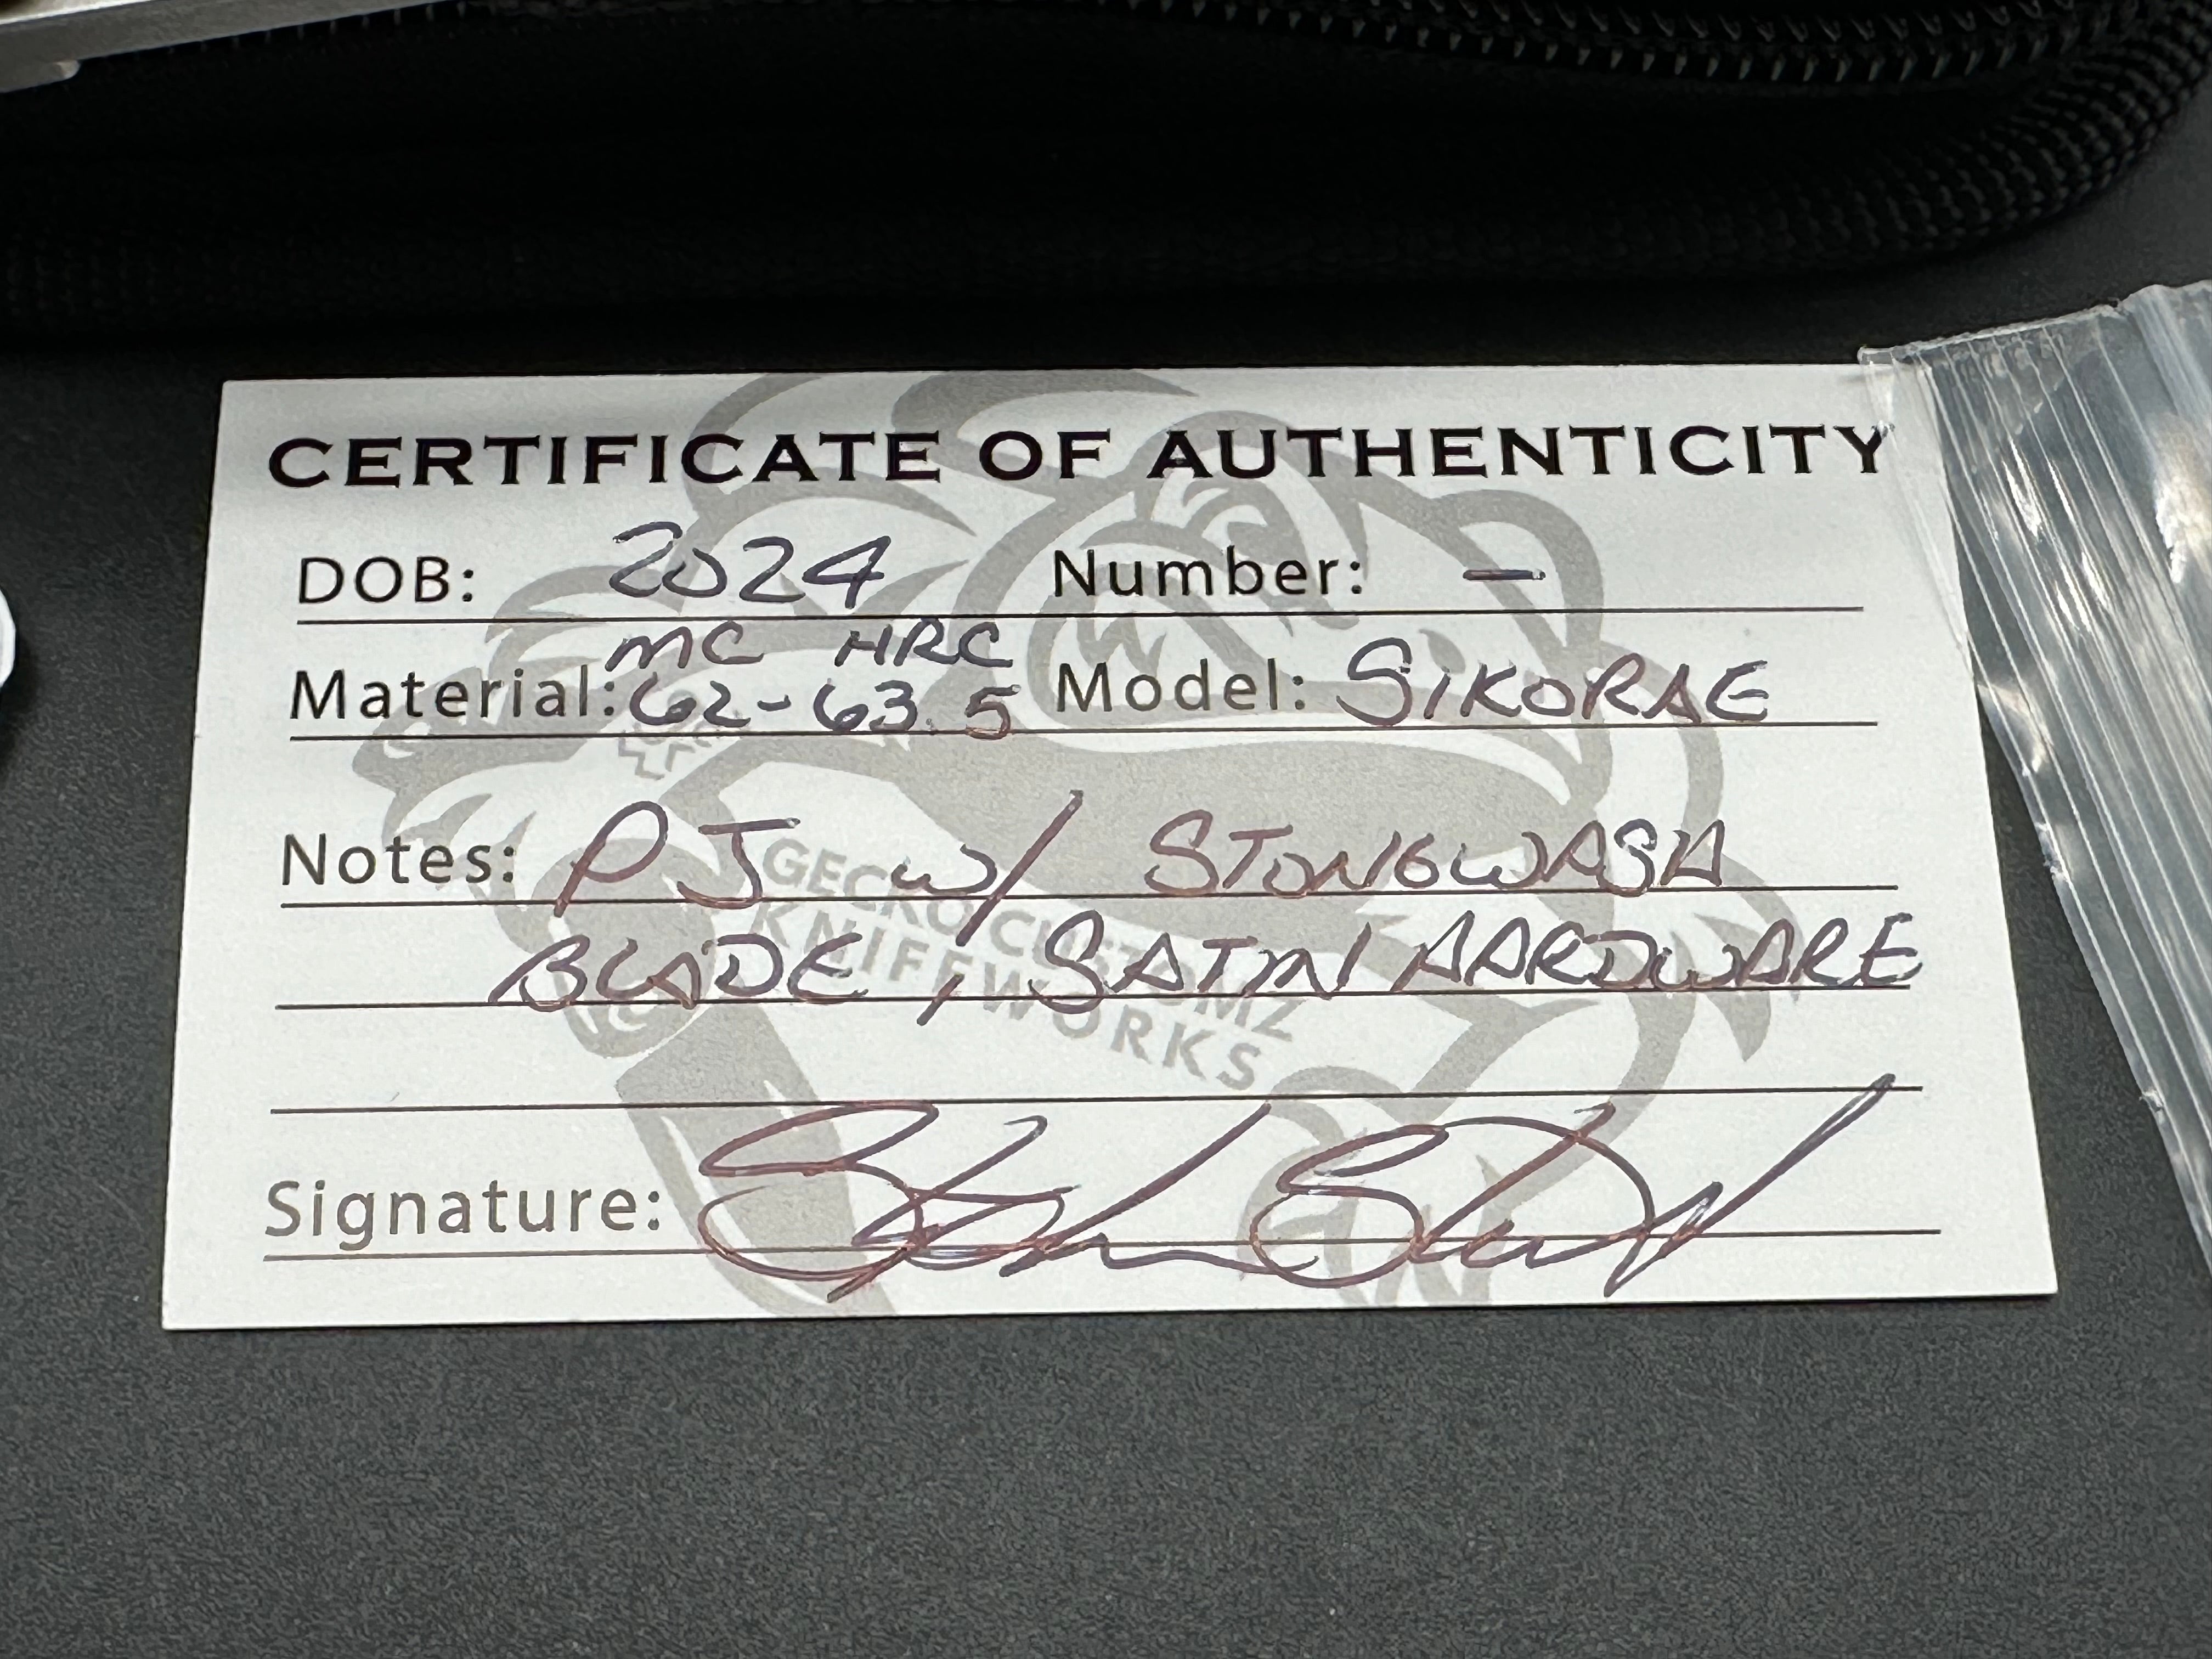 CERTIFICATE OF AUTHENTICITY
DOB: 2024 Number: –
MC HRC
Material: 62-63.5 Model: SIKORAE
Notes: PJ w/ STONEWASH
BLADE, SATIN HARDWARE
GECKO CUSTOMZ
KNIFEWORKS
Signature: